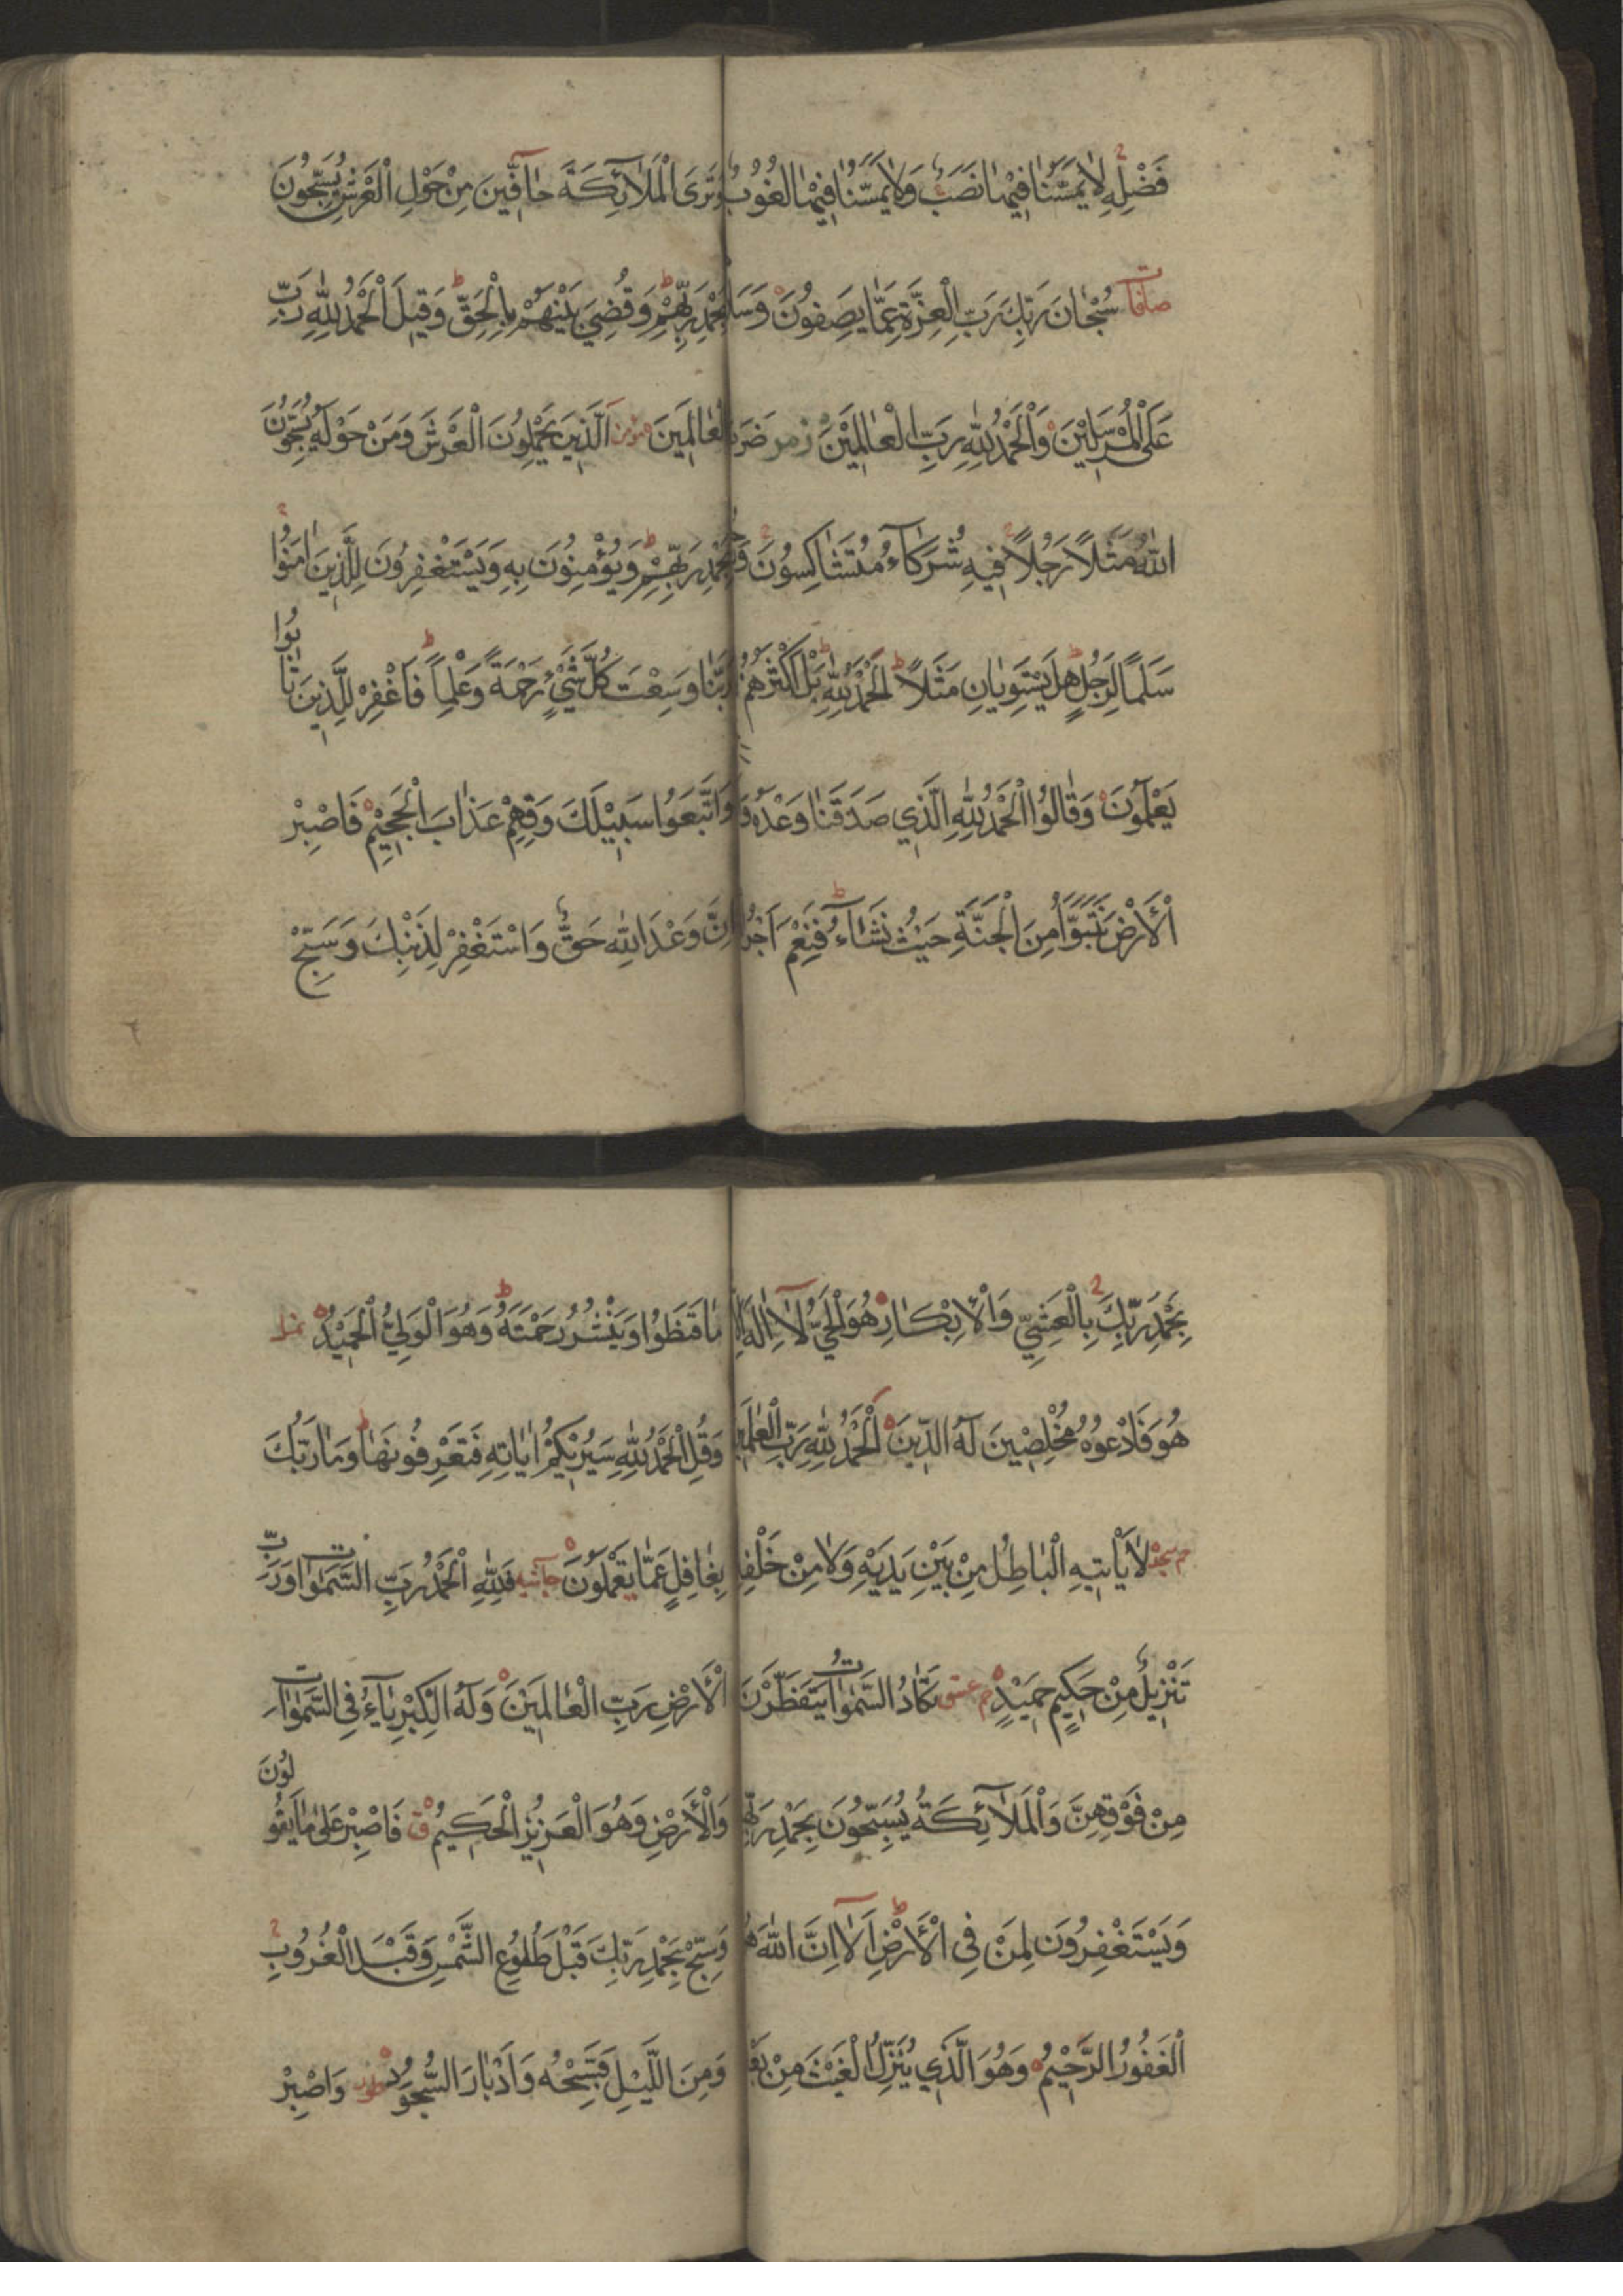 فَضْلِهِ لَا يَمَسُّنَا فِيهَا نَصَبٌ وَلَا يَمَسُّنَا فِيهَا لُغُوبٌ
صافات سُبْحَانَ رَبِّكَ رَبِّ الْعِزَّةِ عَمَّا يَصِفُونَ
عَلَى الْمُرْسَلِينَ وَالْحَمْدُ لِلّٰهِ رَبِّ الْعَالَمِينَ زمر ضَرَبَ
اللّٰهُ مَثَلًا رَجُلًا فِيهِ شُرَكَآءُ مُتَشَاكِسُونَ
سَلَمًا لِرَجُلٍ هَلْ يَسْتَوِيَانِ مَثَلًا اَلْحَمْدُ لِلّٰهِ بَلْ اَكْثَرُهُمْ
يَعْلَمُونَ وَقَالُوا الْحَمْدُ لِلّٰهِ الَّذِي صَدَقَنَا وَعْدَهُ
الْأَرْضَ نَتَبَوَّأُ مِنَ الْجَنَّةِ حَيْثُ نَشَآءُ فَنِعْمَ اَجْرُ
وَتَرَى الْمَلَآئِكَةَ حَآفِّينَ مِنْ حَوْلِ الْعَرْشِ يُسَبِّحُونَ
بِحَمْدِ رَبِّهِمْ وَقُضِيَ بَيْنَهُمْ بِالْحَقِّ وَقِيلَ الْحَمْدُ لِلّٰهِ رَبِّ
الْعَالَمِينَ مؤمن اَلَّذِينَ يَحْمِلُونَ الْعَرْشَ وَمَنْ حَوْلَهُ يُسَبِّحُونَ
بِحَمْدِ رَبِّهِمْ وَيُؤْمِنُونَ بِهِ وَيَسْتَغْفِرُونَ لِلَّذِينَ اٰمَنُوا
رَبَّنَا وَسِعْتَ كُلَّ شَيْءٍ رَحْمَةً وَعِلْمًا فَاغْفِرْ لِلَّذِينَ تَابُوا
وَاتَّبَعُوا سَبِيلَكَ وَقِهِمْ عَذَابَ الْجَحِيمِ فَاصْبِرْ
اِنَّ وَعْدَ اللّٰهِ حَقٌّ وَاسْتَغْفِرْ لِذَنْبِكَ وَسَبِّحْ
بِحَمْدِ رَبِّكَ بِالْعَشِيِّ وَالْأِبْكَارِ هُوَ الْحَيُّ لَآ اِلٰهَ اِلَّا
هُوَ فَادْعُوهُ مُخْلِصِينَ لَهُ الدِّينَ اَلْحَمْدُ لِلّٰهِ رَبِّ الْعٰلَمِينَ
حم سجده لَا يَأْتِيهِ الْبَاطِلُ مِنْ بَيْنِ يَدَيْهِ وَلَا مِنْ خَلْفِهِ
تَنْزِيلٌ مِنْ حَكِيمٍ حَمِيدٍ حم عسق تَكَادُ السَّمٰوَاتُ يَتَفَطَّرْنَ
مِنْ فَوْقِهِنَّ وَالْمَلَآئِكَةُ يُسَبِّحُونَ بِحَمْدِ رَبِّهِمْ
وَيَسْتَغْفِرُونَ لِمَنْ فِي الْأَرْضِ اَلَآ اِنَّ اللّٰهَ هُوَ
الْغَفُورُ الرَّحِيمُ وَهُوَ الَّذِي يُنَزِّلُ الْغَيْثَ مِنْ بَعْدِ
مَا قَنَطُوا وَيَنْشُرُ رَحْمَتَهُ وَهُوَ الْوَلِيُّ الْحَمِيدُ نمل
وَقُلِ الْحَمْدُ لِلّٰهِ سَيُرِيكُمْ اٰيَاتِهِ فَتَعْرِفُونَهَا وَمَا رَبُّكَ
بِغَافِلٍ عَمَّا تَعْمَلُونَ جاثيه فَلِلّٰهِ الْحَمْدُ رَبِّ السَّمٰوَاتِ وَرَبِّ
الْأَرْضِ رَبِّ الْعَالَمِينَ وَلَهُ الْكِبْرِيَآءُ فِي السَّمٰوَاتِ
وَالْأَرْضِ وَهُوَ الْعَزِيزُ الْحَكِيمُ ق فَاصْبِرْ عَلٰى مَا يَقُولُونَ
وَسَبِّحْ بِحَمْدِ رَبِّكَ قَبْلَ طُلُوعِ الشَّمْسِ وَقَبْلَ الْغُرُوبِ
وَمِنَ اللَّيْلِ فَسَبِّحْهُ وَاَدْبَارَ السُّجُودِ طور وَاصْبِرْ